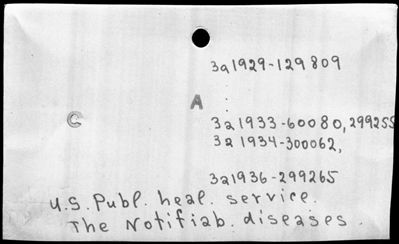 3a1929-129809
A
C
3a1933-60080,299255
3a1934-300062,
3a1936-299265
U.S. Publ. heal. service.
The Notifiab. diseases.